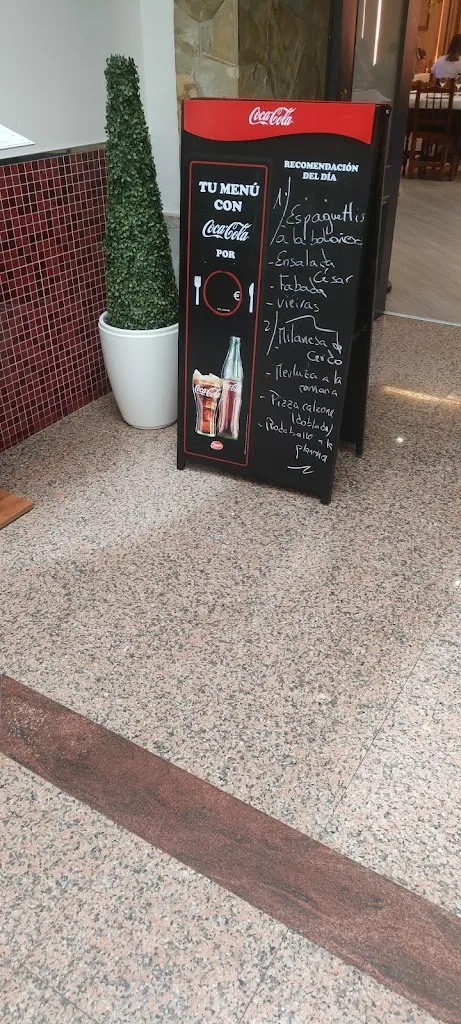 Coca-Cola
TU MENÚ
CON
Coca-Cola
POR
€
RECOMENDACIÓN
DEL DÍA
1º/ Espaguettis
a la boloñesa
- Ensalada
César
- Fabada
- Vieiras
2º/ Milanesa de
Cerdo
- Merluza a la
romana
- Pizza calzone
(doblada)
- Rodaballo a la
plancha